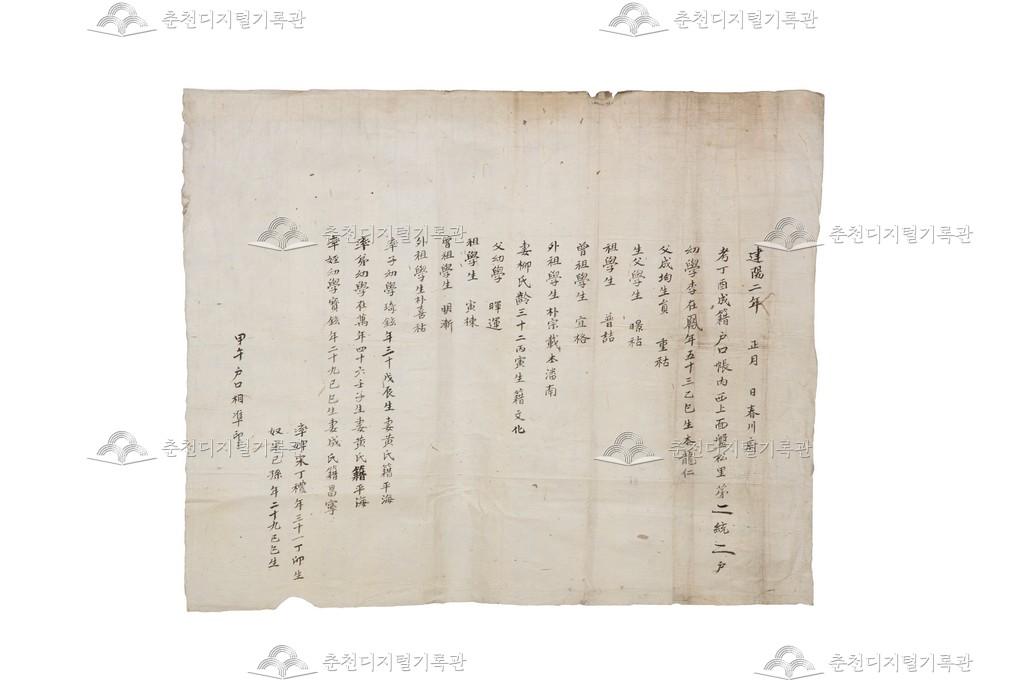 建陽二年 正月 日春川府
考丁酉成籍戶口帳內西上面盤松里第二統二戶
幼學李在 年五十三乙巳生本龍仁
父成均生員 重祜
生父學生 㬌祜
祖學生 普喆
曾祖學生 宜格
外祖學生朴宗載本潘南
妻柳氏齡三十二丙寅生籍文化
父幼學 暉運
祖學生 寅棟
曾祖學生 明漸
外祖學生朴喜祜
率子幼學琦鉉年三十戊辰生妻黃氏籍平海
率弟幼學在萬年四十六壬子生妻黃氏籍平海
率姪幼學寶鉉年二十九己巳生妻成氏籍昌寧
率婢宋丁禮年三十一丁卯生
奴 己孫年二十九己巳生
甲午戶口相準印
춘천디지털기록관
춘천디지털기록관
춘천디지털기록관
춘천디지털기록관
춘천디지털기록관
춘천디지털기록관
춘천디지털기록관
춘천디지털기록관